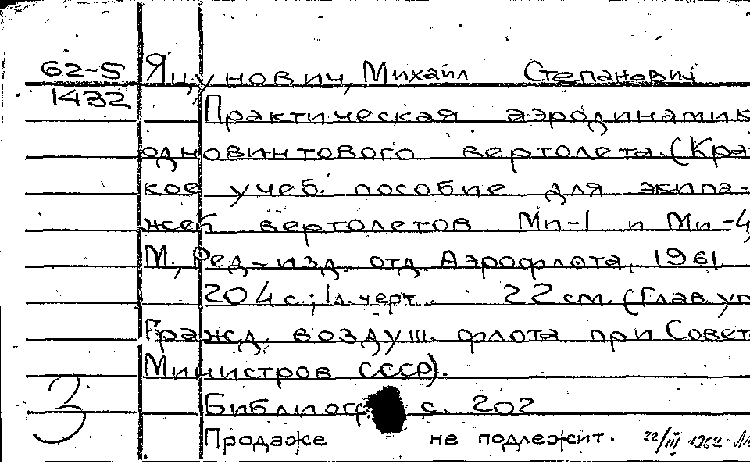 62-5 Яцунович, Михаил Степанович
1432
Практическая аэродинамик
одновинтового вертолета. (Кра
кое учеб. пособие для экипа-
жей вертолетов Ми-1 и Ми-4,
М., Ред.-изд. отд Аэрофлота, 1961
204 с.; 1 л. черт. 22 см. (Глав. уп
Гражд. воздуш. флота при Совет
Министров СССР).
Библиогр с. 202
3
Продаже не подлежит. 22/III 1962